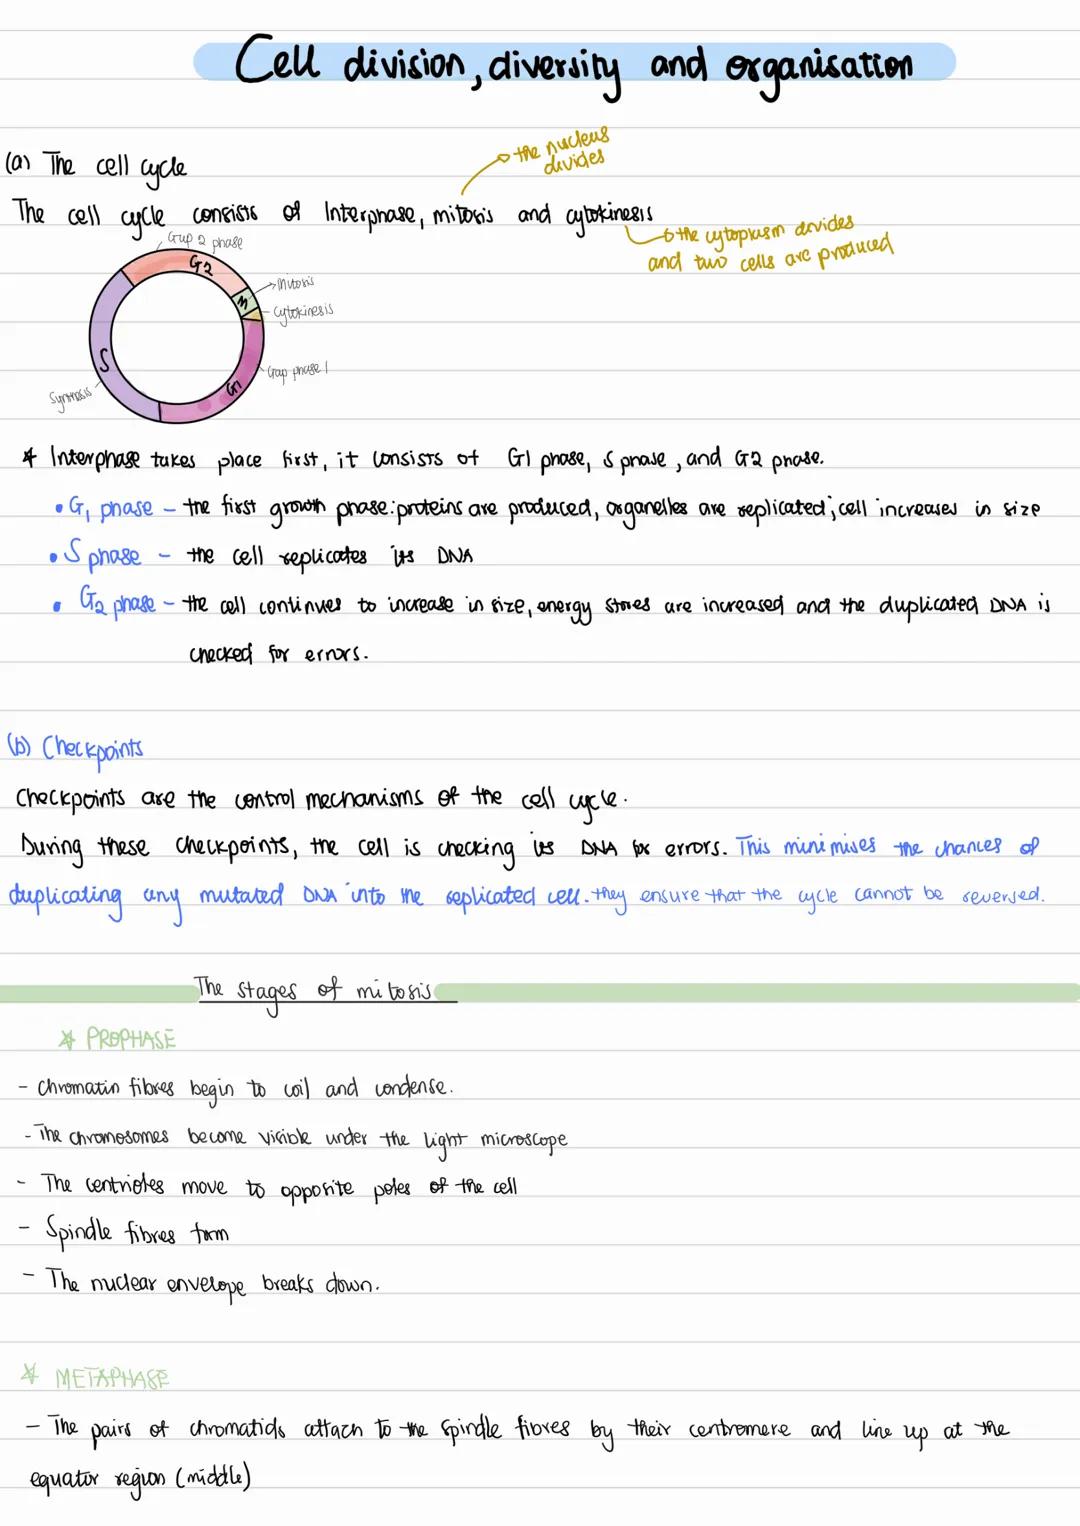 Cell division, diversity and organisation
the nucleus
divides
(a) The cell cycle
The cell cycle consists of Interphase, mitosis and cytokinesis
the cytoplasm divides
and two cells are produced
Gap 2 phase
G2
Mitosis
M
Cytokinesis
S
Gap phase 1
G1
Synthesis
* Interphase takes place first, it consists of G1 phase, S phase, and G2 phase.
• G1 phase – the first growth phase: proteins are produced, organelles are replicated; cell increases in size
• S phase – the cell replicates its DNA
• G2 phase – the cell continues to increase in size, energy stores are increased and the duplicated DNA is
checked for errors.
(b) Checkpoints
Checkpoints are the control mechanisms of the cell cycle.
During these checkpoints, the cell is checking its DNA for errors. This minimises the chances of
duplicating any mutated DNA into the replicated cell. they ensure that the cycle cannot be reversed.
The stages of mitosis
* PROPHASE
- Chromatin fibres begin to coil and condense.
- The chromosomes become visible under the light microscope
- The centrioles move to opposite poles of the cell
- Spindle fibres form
- The nuclear envelope breaks down.
* METAPHASE
- The pairs of chromatids attach to the spindle fibres by their centromere and line up at the
equator region (middle)